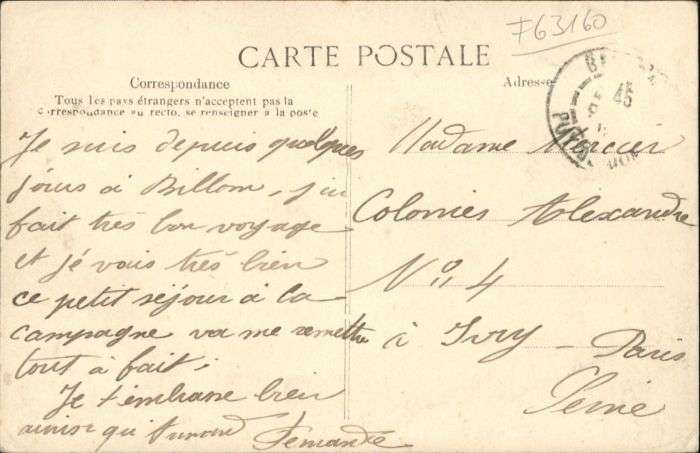 F63160
CARTE POSTALE
Correspondance
Tous les pays étrangers n'acceptent pas la
correspondance au recto, se renseigner a la poste
Adresse
45
Je suis depuis quelques
jours à Billom, j'ai
fait très bon voyage
et je vais très bien
ce petit séjour à la
campagne va me remettre
tout à fait.
Je t'embrasse bien
ainsi qu'
Fernande
Madame Mercier
Colonies Alexandre
No 4
à Ivry - Paris
Seine